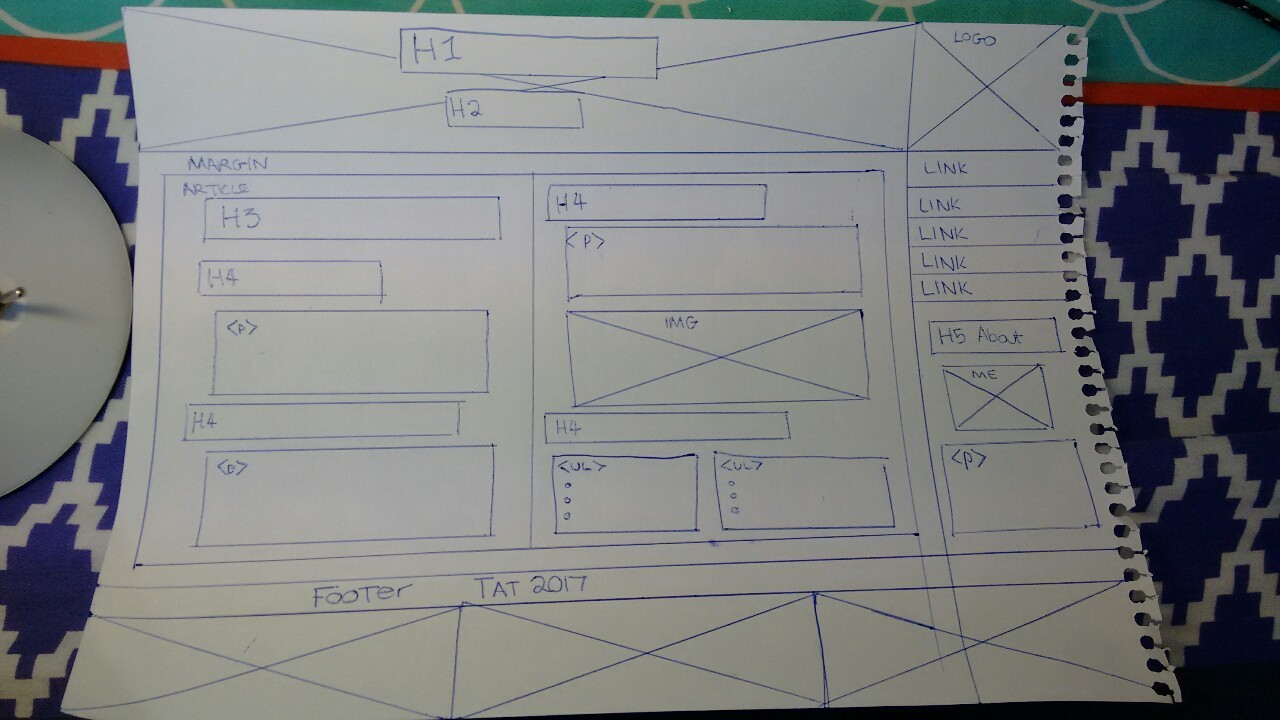 H1
H2
LOGO
MARGIN
ARTICLE
H3
H4
<P>
H4
<P>
H4
<P>
IMG
H4
<UL>
<UL>
LINK
LINK
LINK
LINK
LINK
H5 About
ME
<P>
FOOTER TAT 2017